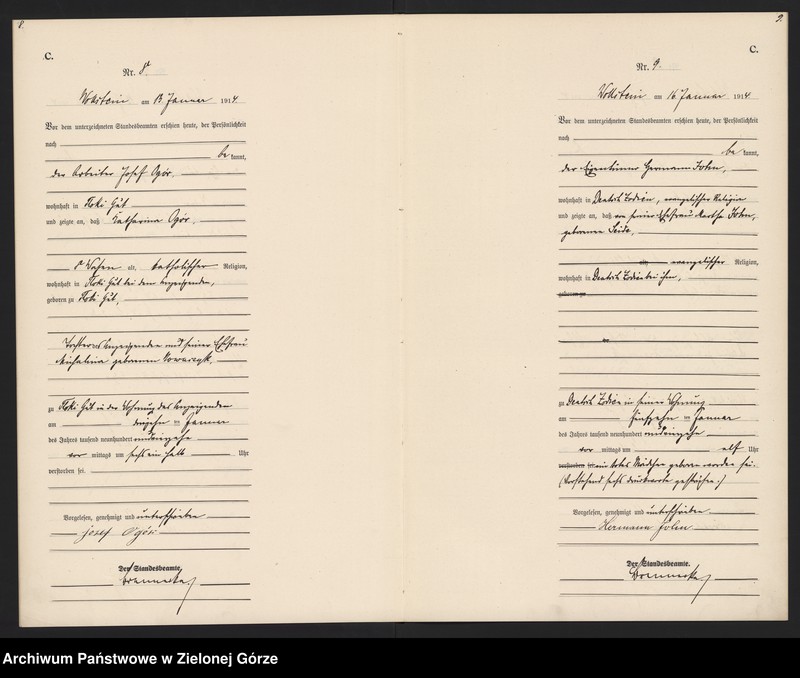 8.
C.
Nr. 8.
Wollstein am 13 Januar 1914
Vor dem unterzeichneten Standesbeamten erschien heute, der Persönlichkeit
nach
be kannt,
der Arbeiter Josef Ogór,
wohnhaft in Tloki Gut
und zeigte an, daß Katharina Ogór,
8 Wochen alt, katholischer Religion,
wohnhaft in Tloki Gut bei dem Anzeigenden,
geboren zu Tloki Gut,
Tochter des Anzeigenden und seiner Ehefrau
Michalina geborenen Nowaczyk,
zu Tloki Gut in der Wohnung des Anzeigenden
am dreizehn ten Januar
des Jahres tausend neunhundert und vierzehn
vor mittags um sechs ein halb Uhr
verstorben sei.
Vorgelesen, genehmigt und unterschrieben
Josef Ogór
Der Standesbeamte.
9.
C.
Nr. 9.
Wollstein am 16 Januar 1914
Vor dem unterzeichneten Standesbeamten erschien heute, der Persönlichkeit
nach
be kannt,
der Eigentümer Hermann
wohnhaft in Deutsch , evangelischer Religion
und zeigte an, daß von seiner Ehefrau Martha
geborenen
alt, evangelischer Religion,
wohnhaft in Deutsch bei ihm,
geboren zu
zu Deutsch in seiner Wohnung
am fünfzehn ten Januar
des Jahres tausend neunhundert und vierzehn
vor mittags um elf Uhr
verstorben sei ein totes Mädchen geboren worden sei.
(Vorstehend sechs Druckworte gestrichen.)
Vorgelesen, genehmigt und unterschrieben
Hermann
Der Standesbeamte.
Archiwum Państwowe w Zielonej Górze